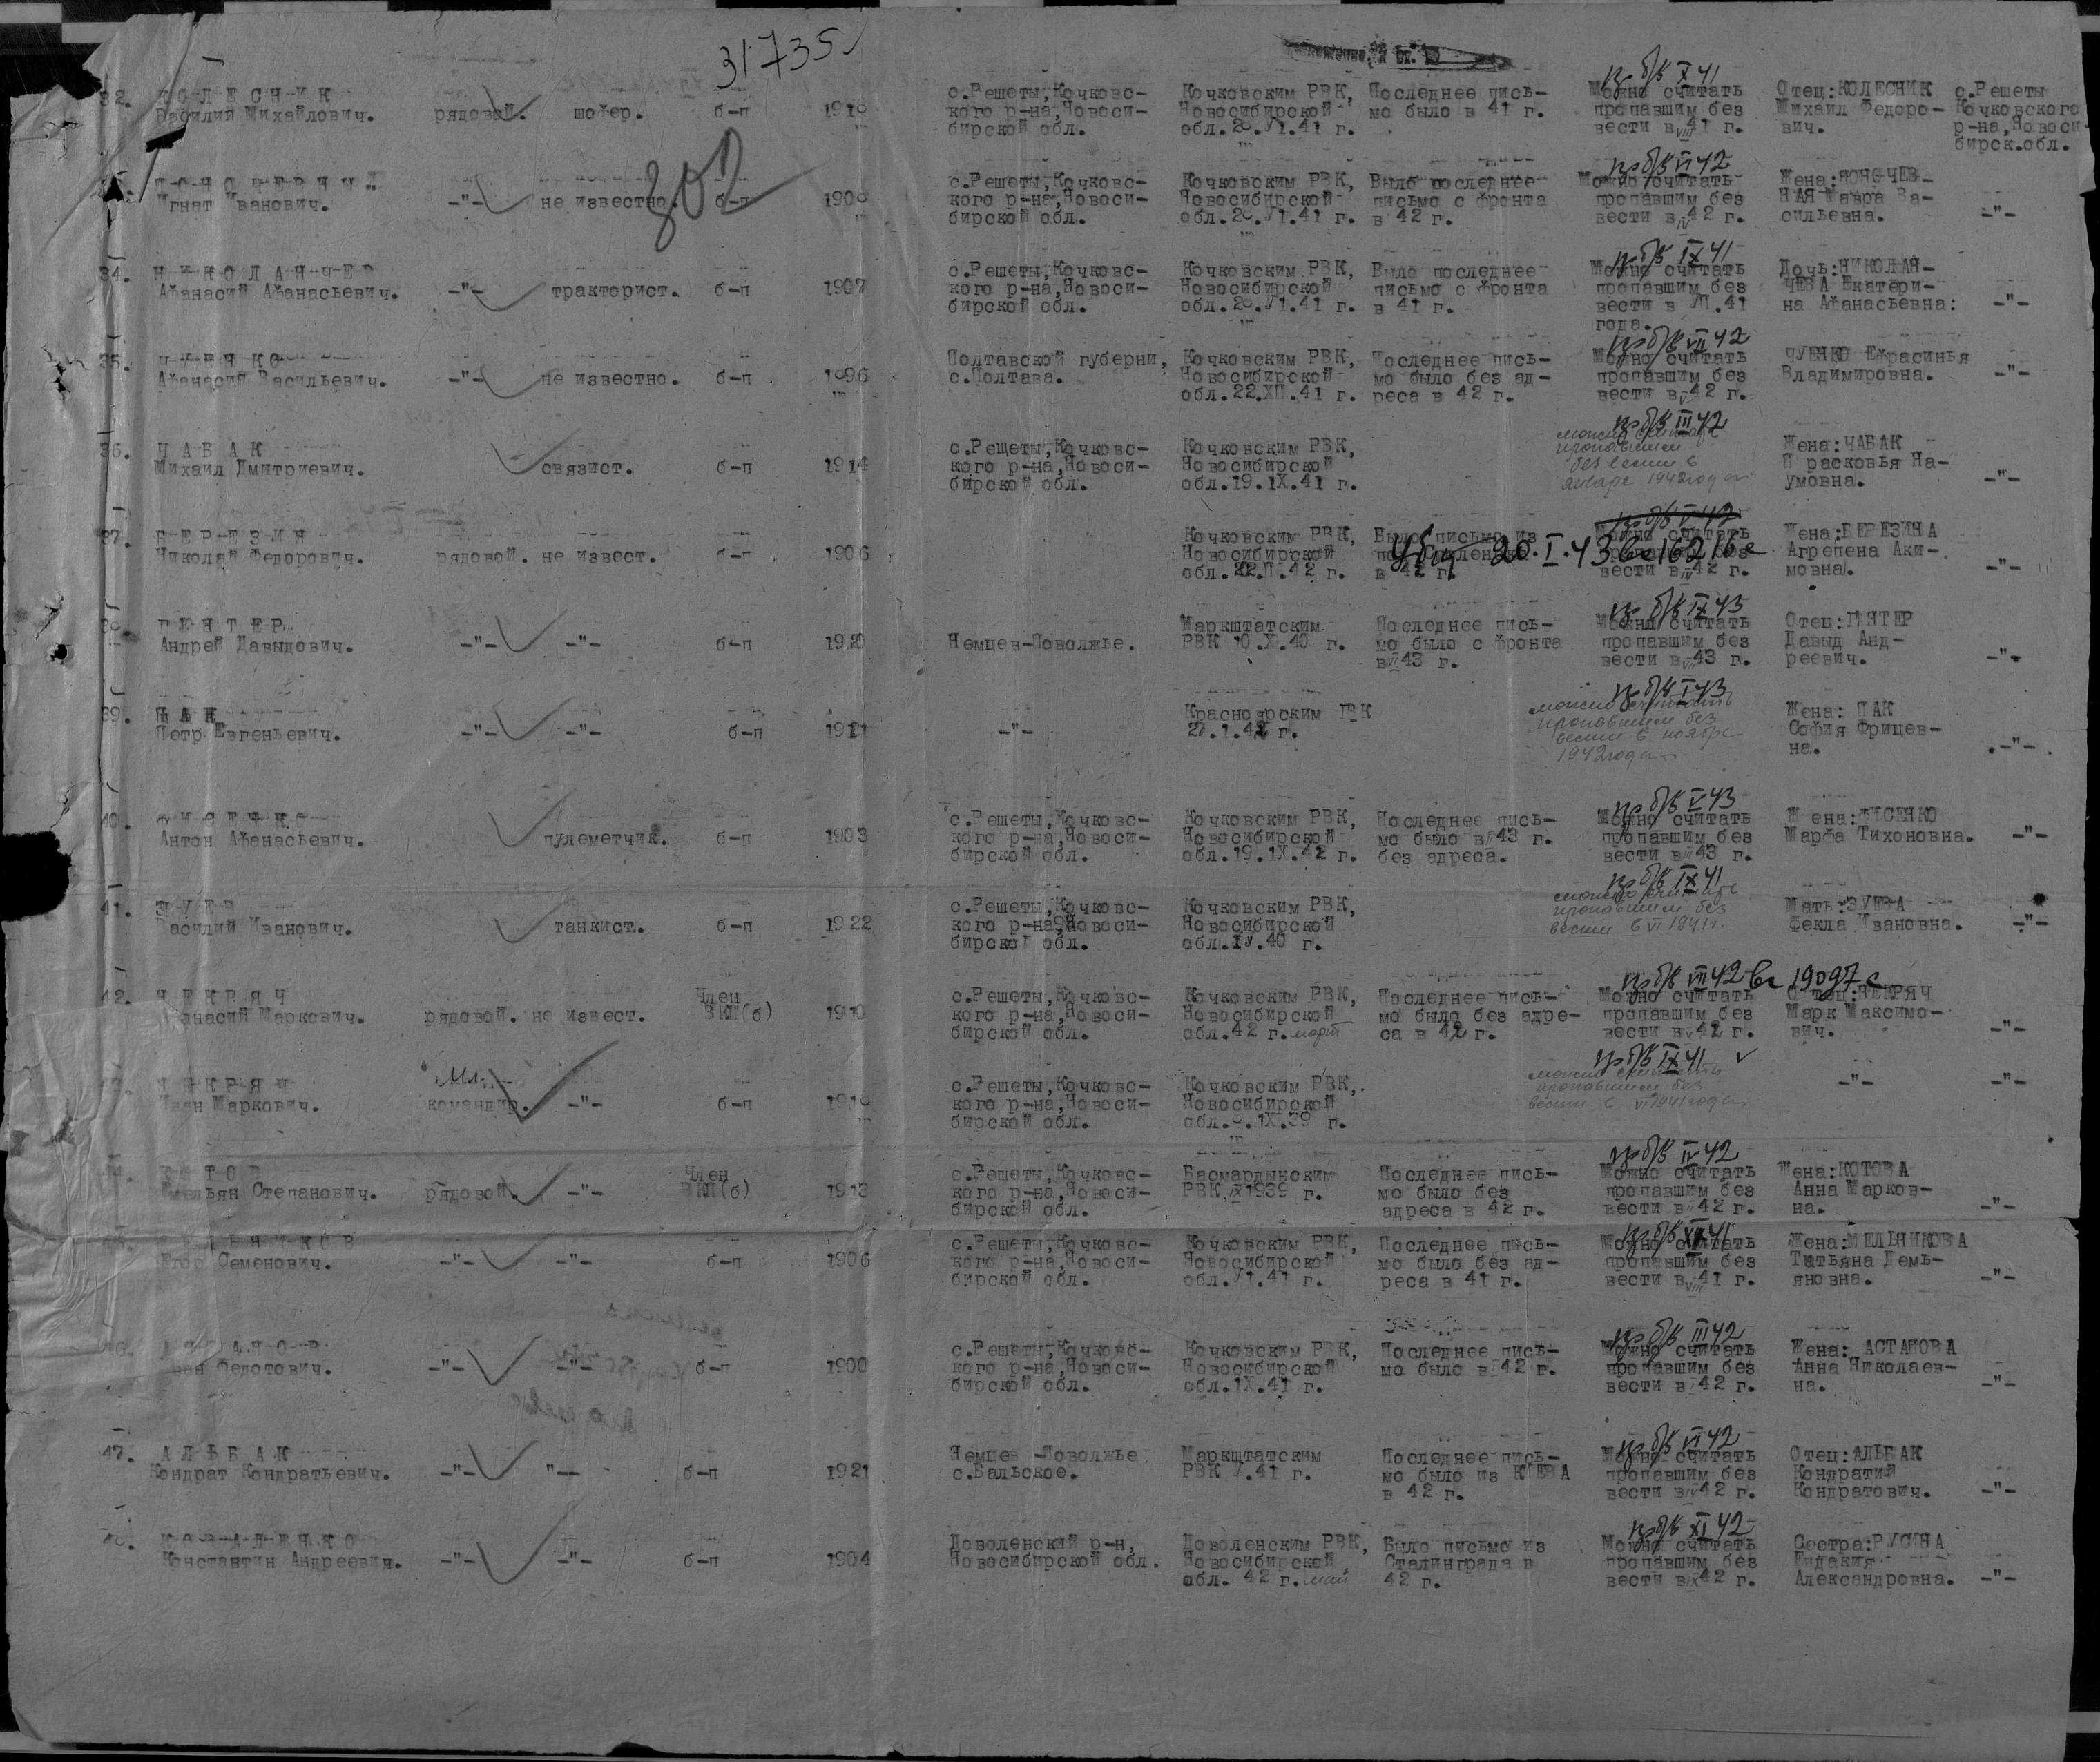 31735
802
32. КОЛЕСНИК Василий Михайлович. рядовой. шофер. б-п 1918 с.Решеты,Кочковс-кого р-на,Новоси-бирской обл. Кочковским РВК, Новосибирской обл. 28.У1.41 г. Последнее пись-мо было в 41 г. пр б/в X 41 Можно считать пропавшим без вести в VIII 41 г. Отец:КОЛЕСНИК Михаил Федоро-вич. с.Решеты Кочковского р-на,Новоси-бирск.обл.
Игнат Иванович. -"- не известно. б-п 1908 с.Решеты,Кочковс-кого р-на,Новоси-бирской обл. Кочковским РВК, Новосибирской обл.28.У1.41 г. Было последнее письмо с фронта в 42 г. пр б/в VI 42 Можно считать пропавшим без вести в IV 42 г. Жена: НАЯ Мавра Ва-сильевна. -"-
34. НИКОЛАЙЧЕВ Афанасий Афанасьевич. -"- тракторист. б-п 1907 с.Решеты,Кочковс-кого р-на,Новоси-бирской обл. Кочковским РВК, Новосибирской обл.28.У1.41 г. Было последнее письмо с фронта в 41 г. пр б/в IX 41 Можно считать пропавшим без вести в УП.41 года. Дочь:НИКОЛАЙ-ЧЕВА Екатери-на Афанасьевна: -"-
35. ЧУЕНКО Афанасий Васильевич. -"- не известно. б-п 1896 Полтавской губерни, с.Полтава. Кочковским РВК, Новосибирской обл.22.ХП.41 г. Последнее пись-мо было без ад-реса в 42 г. пр б/в VII 42 Можно считать пропавшим без вести в V 42 г. ЧУЕНКО Ефрасинья Владимировна. -"-
36. ЧАБАК Михаил Дмитриевич. связист. б-п 1914 с.Рещеты,Кочковс-кого р-на,Новоси-бирской обл. Кочковским РВК, Новосибирской обл.19.1Х.41 г. пр б/в III 42 можно считать пропавшим без вести в январе 1942 года Жена:ЧАБАК П расковья На-умовна. -"-
37. БЕРЕЗИН Николай Федорович. рядовой. не извест. б-п 1906 Кочковским РВК, Новосибирской обл.22.П.42 г. Было письмо из в 42 г. убит 20.I.43 вх 162 с пр б/в V 42 Можно считать пропавшим без вести в IV 42 г. Жена:БЕРЕЗИНА Агрепена Аки-мовна. -"-
38. ГЕНТЕР Андрей Давыдович. -"- -"- б-п 1920 Немцев-Поволжье. Маркштатским РВК 10.Х.40 г. Последнее пись-мо было с фронта в VI 43 г. пр б/в IX 43 Можно считать пропавшим без вести в VII 43 г. Отец: Давыд Анд-реевич. -"-
39. ПАК Петр Евгеньевич. -"- -"- б-п 1921 -"- Красноярским ГВК г. пр б/в I 43 можно считать пропавшим без вести в ноябре 1942 года Жена: ПАК София Фрицев-на. -"-
40. ФИСЕНКО Антон Афанасьевич. пулеметчик. б-п 1903 с.Решеты,Кочковс-кого р-на,Новоси-бирской обл. Кочковским РВК, Новосибирской обл.19.1Х.42 г. Последнее пись-мо было в 43 г. без адреса. пр б/в V 43 Можно считать пропавшим без вести в III 43 г. Ж ена:ФИСЕНКО Марфа Тихоновна. -"-
41. ЗУЕВ Василий Иванович. танкист. б-п 1922 с.Решеты,Кочковс-кого р-на,Новоси-бирской обл. Кочковским РВК, Новосибирской обл.1У.40 г. пр б/в IX 41 можно считать пропавшим без вести в VI 1941 г. Мать:ЗУЕВА Фекла Ивановна. -"-
42. ЧЕКРЯЧ Афанасий Маркович. рядовой. не извест. Член ВКП(б) 1910 с.Решеты,Кочковс-кого р-на,Новоси-бирской обл. Кочковским РВК, Новосибирской обл.42 г. март Последнее пись-мо было без адре-са в 42 г. пр б/в VII 42 вх 19097 с Можно считать пропавшим без вести в V 42 г. Отец:ЧЕКРЯЧ Марк Максимо-вич. -"-
ЧЕКРЯЧ Иван Маркович. Мл. командир. -"- б-п 1918 с.Решеты,Кочковс-кого р-на,Новоси-бирской обл. Кочковским РВК, Новосибирской обл.8.1Х.39 г. пр б/в IX 41 можно считать пропавшим без вести в VI 1941 года -"- -"-
КОТОВ Емельян Степанович. рядовой. -"- Член ВКП(б) 1913 с.Решеты,Кочковс-кого р-на,Новоси-бирской обл. Басмардынским РВК, IX 1939 г. Последнее пись-мо было без адреса в 42 г. пр б/в IV 42 Можно считать пропавшим без вести в 42 г. Жена:КОТОВА Анна Марков-на. -"-
МЕЛЬНИКОВ Егор Семенович. -"- -"- б-п 1906 с.Решеты,Кочковс-кого р-на,Новоси-бирской обл. Кочковским РВК, Новосибирской обл.У1.41 г. Последнее пись-мо было без ад-реса в 41 г. пр б/в XI 41 Можно считать пропавшим без вести в VIII 41 г. Жена:МЕЛЬНИКОВА Татьяна Демь-яновна. -"-
АСТАНОВ Иван Федотович. -"- -"- б-п 1900 с.Решеты,Кочковс-кого р-на,Новоси-бирской обл. Кочковским РВК, Новосибирской обл.1Х.41 г. Последнее пись-мо было в 42 г. пр б/в III 42 Можно считать пропавшим без вести в 42 г. Жена: АСТАНОВА Анна Николаев-на. -"-
47. АЛЬБАК Кондрат Кондратьевич. -"- "-- б-п 1921 Немцев -Поволжье с.Вальское. Маркштатским РВК У.41 г. Последнее пись-мо было из КИЕВА в 42 г. пр б/в VI 42 Можно считать пропавшим без вести в IV 42 г. Отец:АЛЬБАК Кондратий Кондратович. -"-
48. КОВАЛЕНКО Константин Андреевич. -"- -"- б-п 1904 Доволенский р-н, Новосибирской обл. Доволенским РВК, Новосибирской обл. 42 г. май Было письмо из Сталинграда в 42 г. пр б/в XI 42 Можно считать пропавшим без вести в IX 42 г. Сестра:РУСИНА Евдакия Александровна. -"-